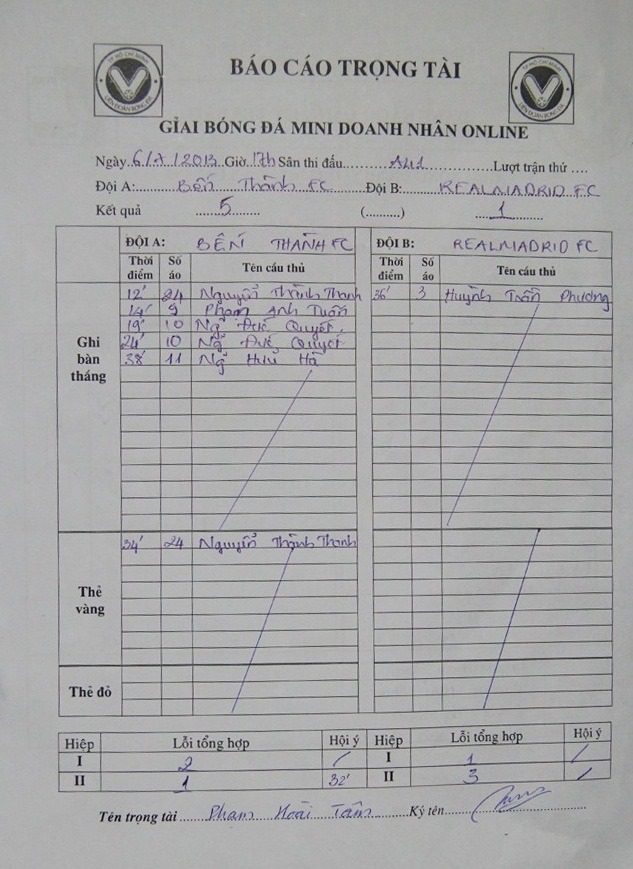 TP HỒ CHÍ MINH
LIÊN ĐOÀN BÓNG ĐÁ
BÁO CÁO TRỌNG TÀI
TP HỒ CHÍ MINH
LIÊN ĐOÀN BÓNG ĐÁ
GIẢI BÓNG ĐÁ MINI DOANH NHÂN ONLINE
Ngày 6/X/2013 Giờ 17h Sân thi đấu Lượt trận thứ ....
Đội A: Bến Thành FC Đội B: REALMADRID FC
Kết quả 5 (..........) 1
ĐỘI A: BẾN THÀNH FC ĐỘI B: REALMADRID FC
Thời điểm Số áo Tên cầu thủ Thời điểm Số áo Tên cầu thủ
Ghi bàn thắng
12' 24 Nguyễn Thành Thanh 36' 3 Huỳnh Tuấn Phương
14' 9 Phạm Anh Tuấn
19' 10 Ng Đức Quyết
24' 10 Ng Đức Quyết
38' 11 Ng Hữu Hà
Thẻ vàng
34' 24 Nguyễn Thành Thanh
Thẻ đỏ
Hiệp Lỗi tổng hợp Hội ý Hiệp Lỗi tổng hợp Hội ý
I 2 / I 1 /
II 1 32' II 3 /
Tên trọng tài Phạm Hoài Tâm Ký tên